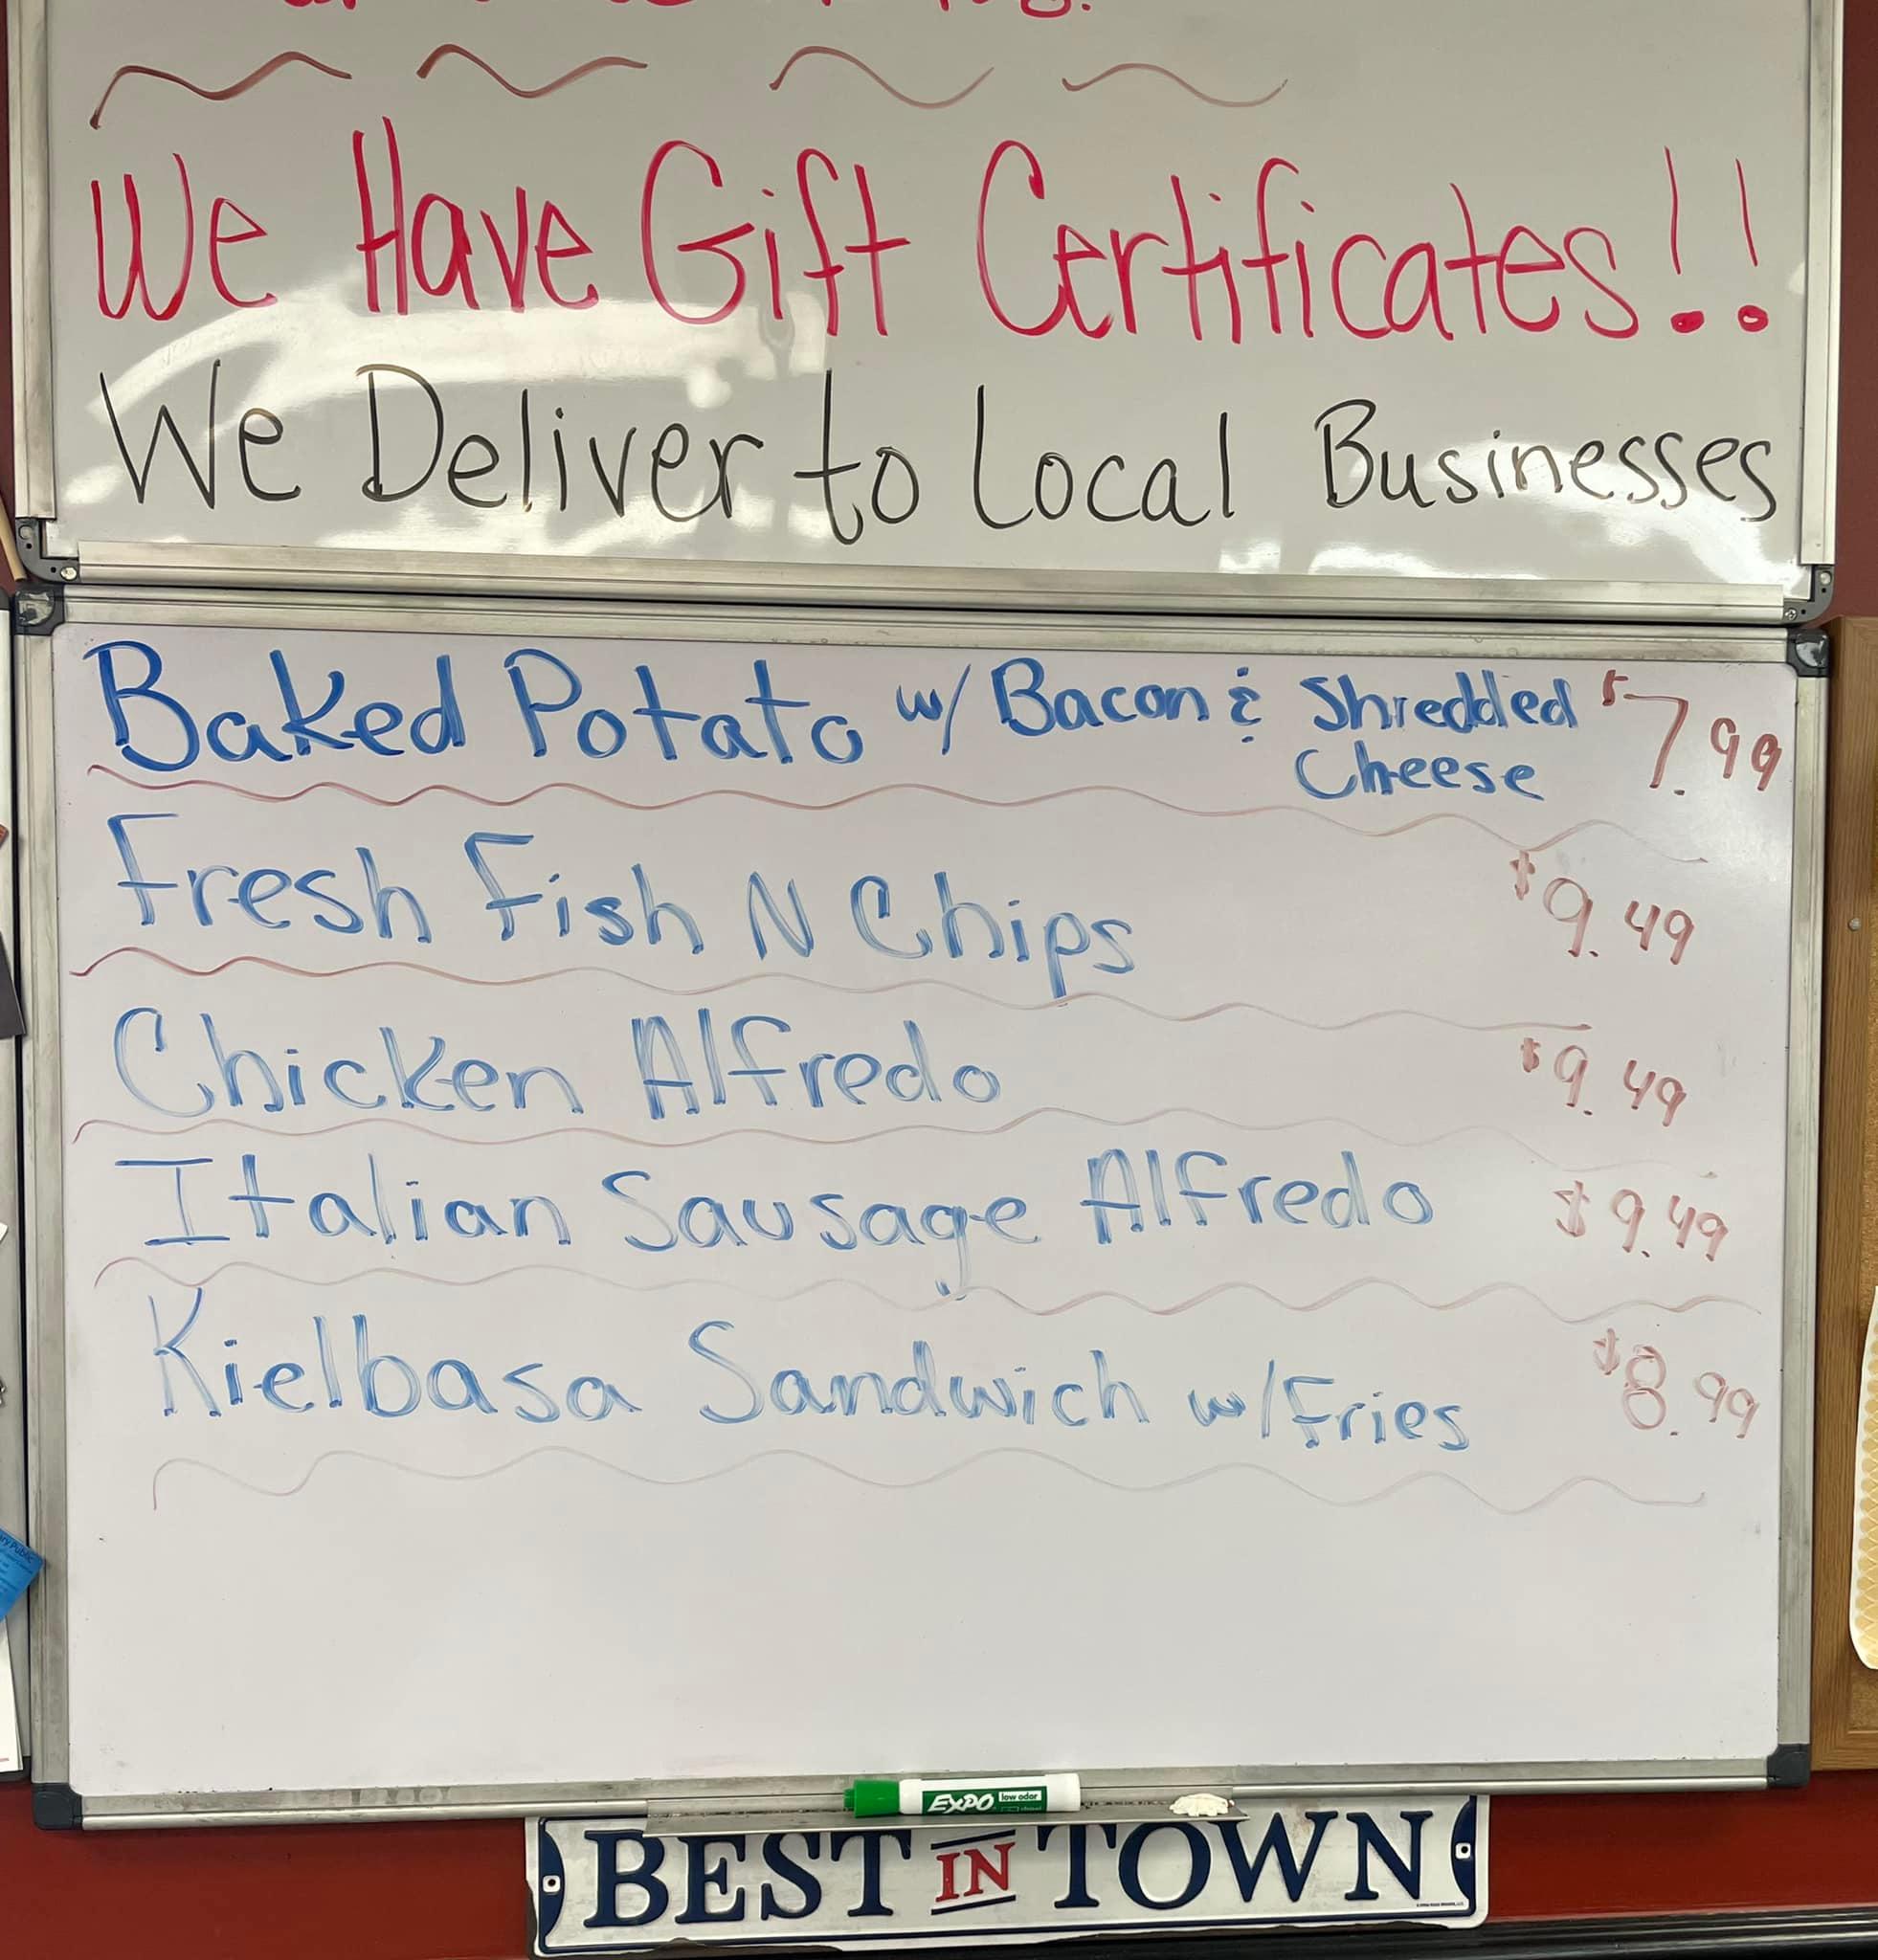 We Have Gift Certificates!!
We Deliver to Local Businesses
Baked Potato w/ Bacon & Shredded Cheese $7.99
Fresh Fish N Chips $9.49
Chicken Alfredo $9.49
Italian Sausage Alfredo $9.49
Kielbasa Sandwich w/Fries $8.99
EXPO low odor
BEST IN TOWN